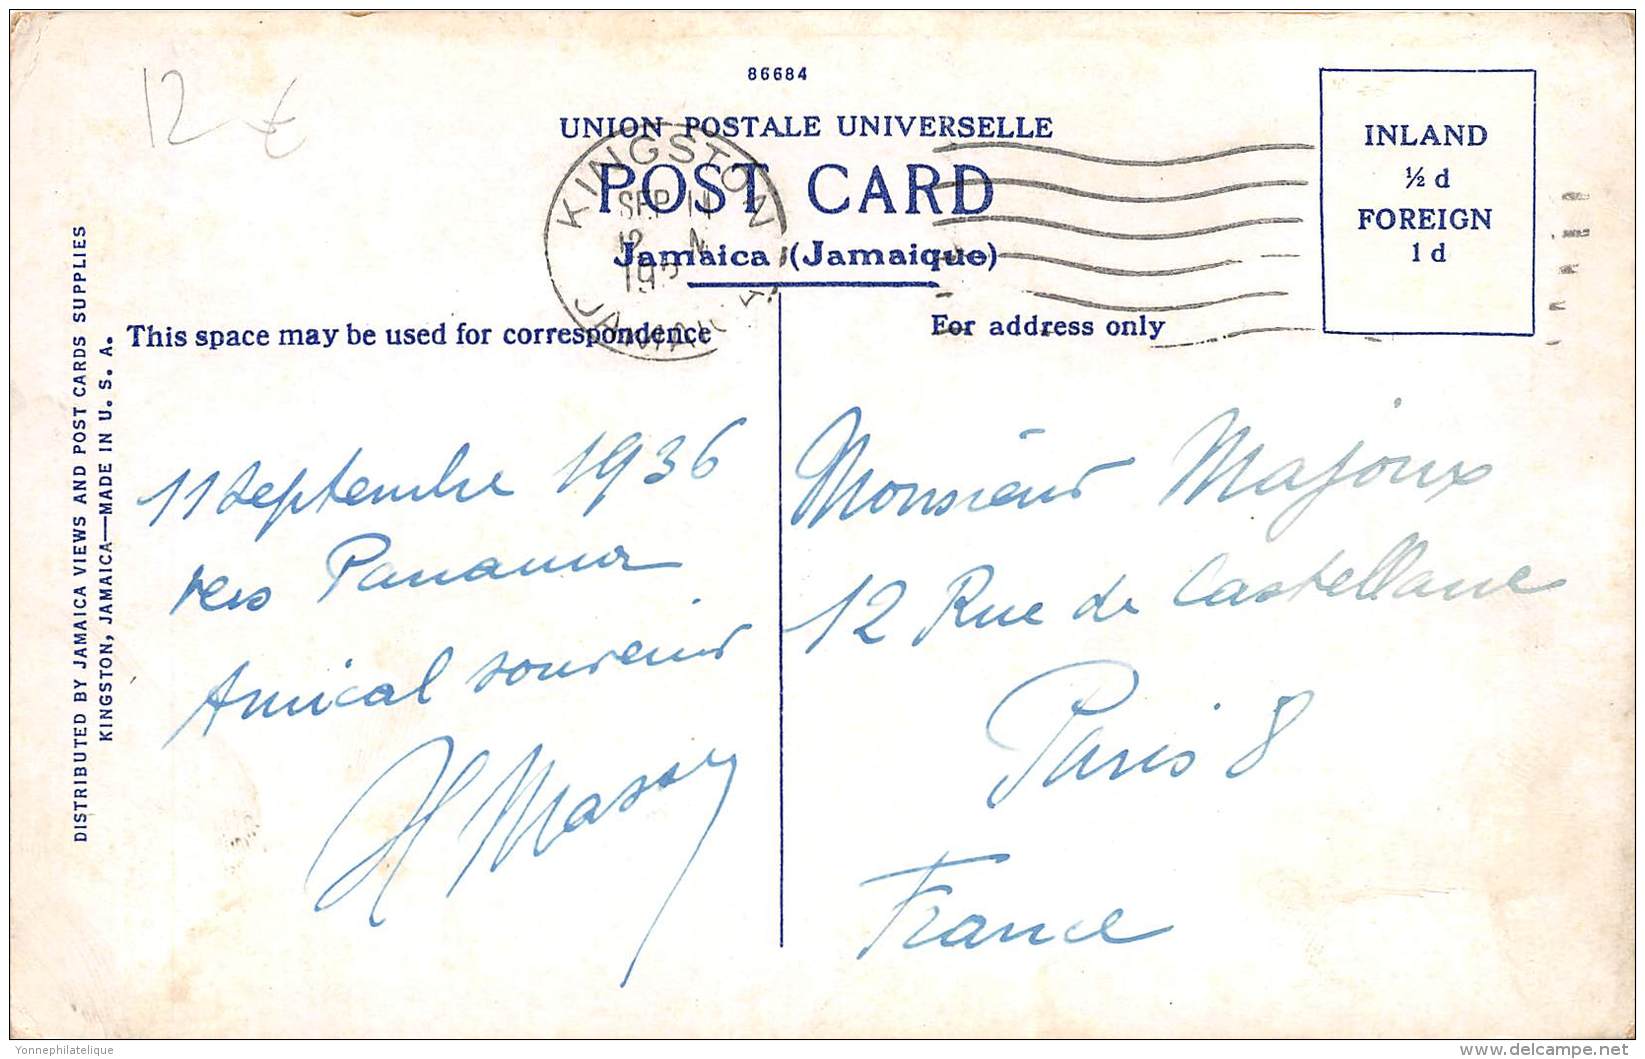 12 €
86684
UNION POSTALE UNIVERSELLE
POST CARD
Jamaica (Jamaique)
KINGSTON
SEP 11
INLAND
½ d
FOREIGN
1 d
This space may be used for correspondence
For address only
DISTRIBUTED BY JAMAICA VIEWS AND POST CARDS SUPPLIES
KINGSTON, JAMAICA—MADE IN U. S. A.
11 septembre 1936
vers Panama
Amical souvenir
H Massy
Monsieur Majoux
12 Rue de Castellane
Paris 8
France
Yonnephilatelique
delcampe.net